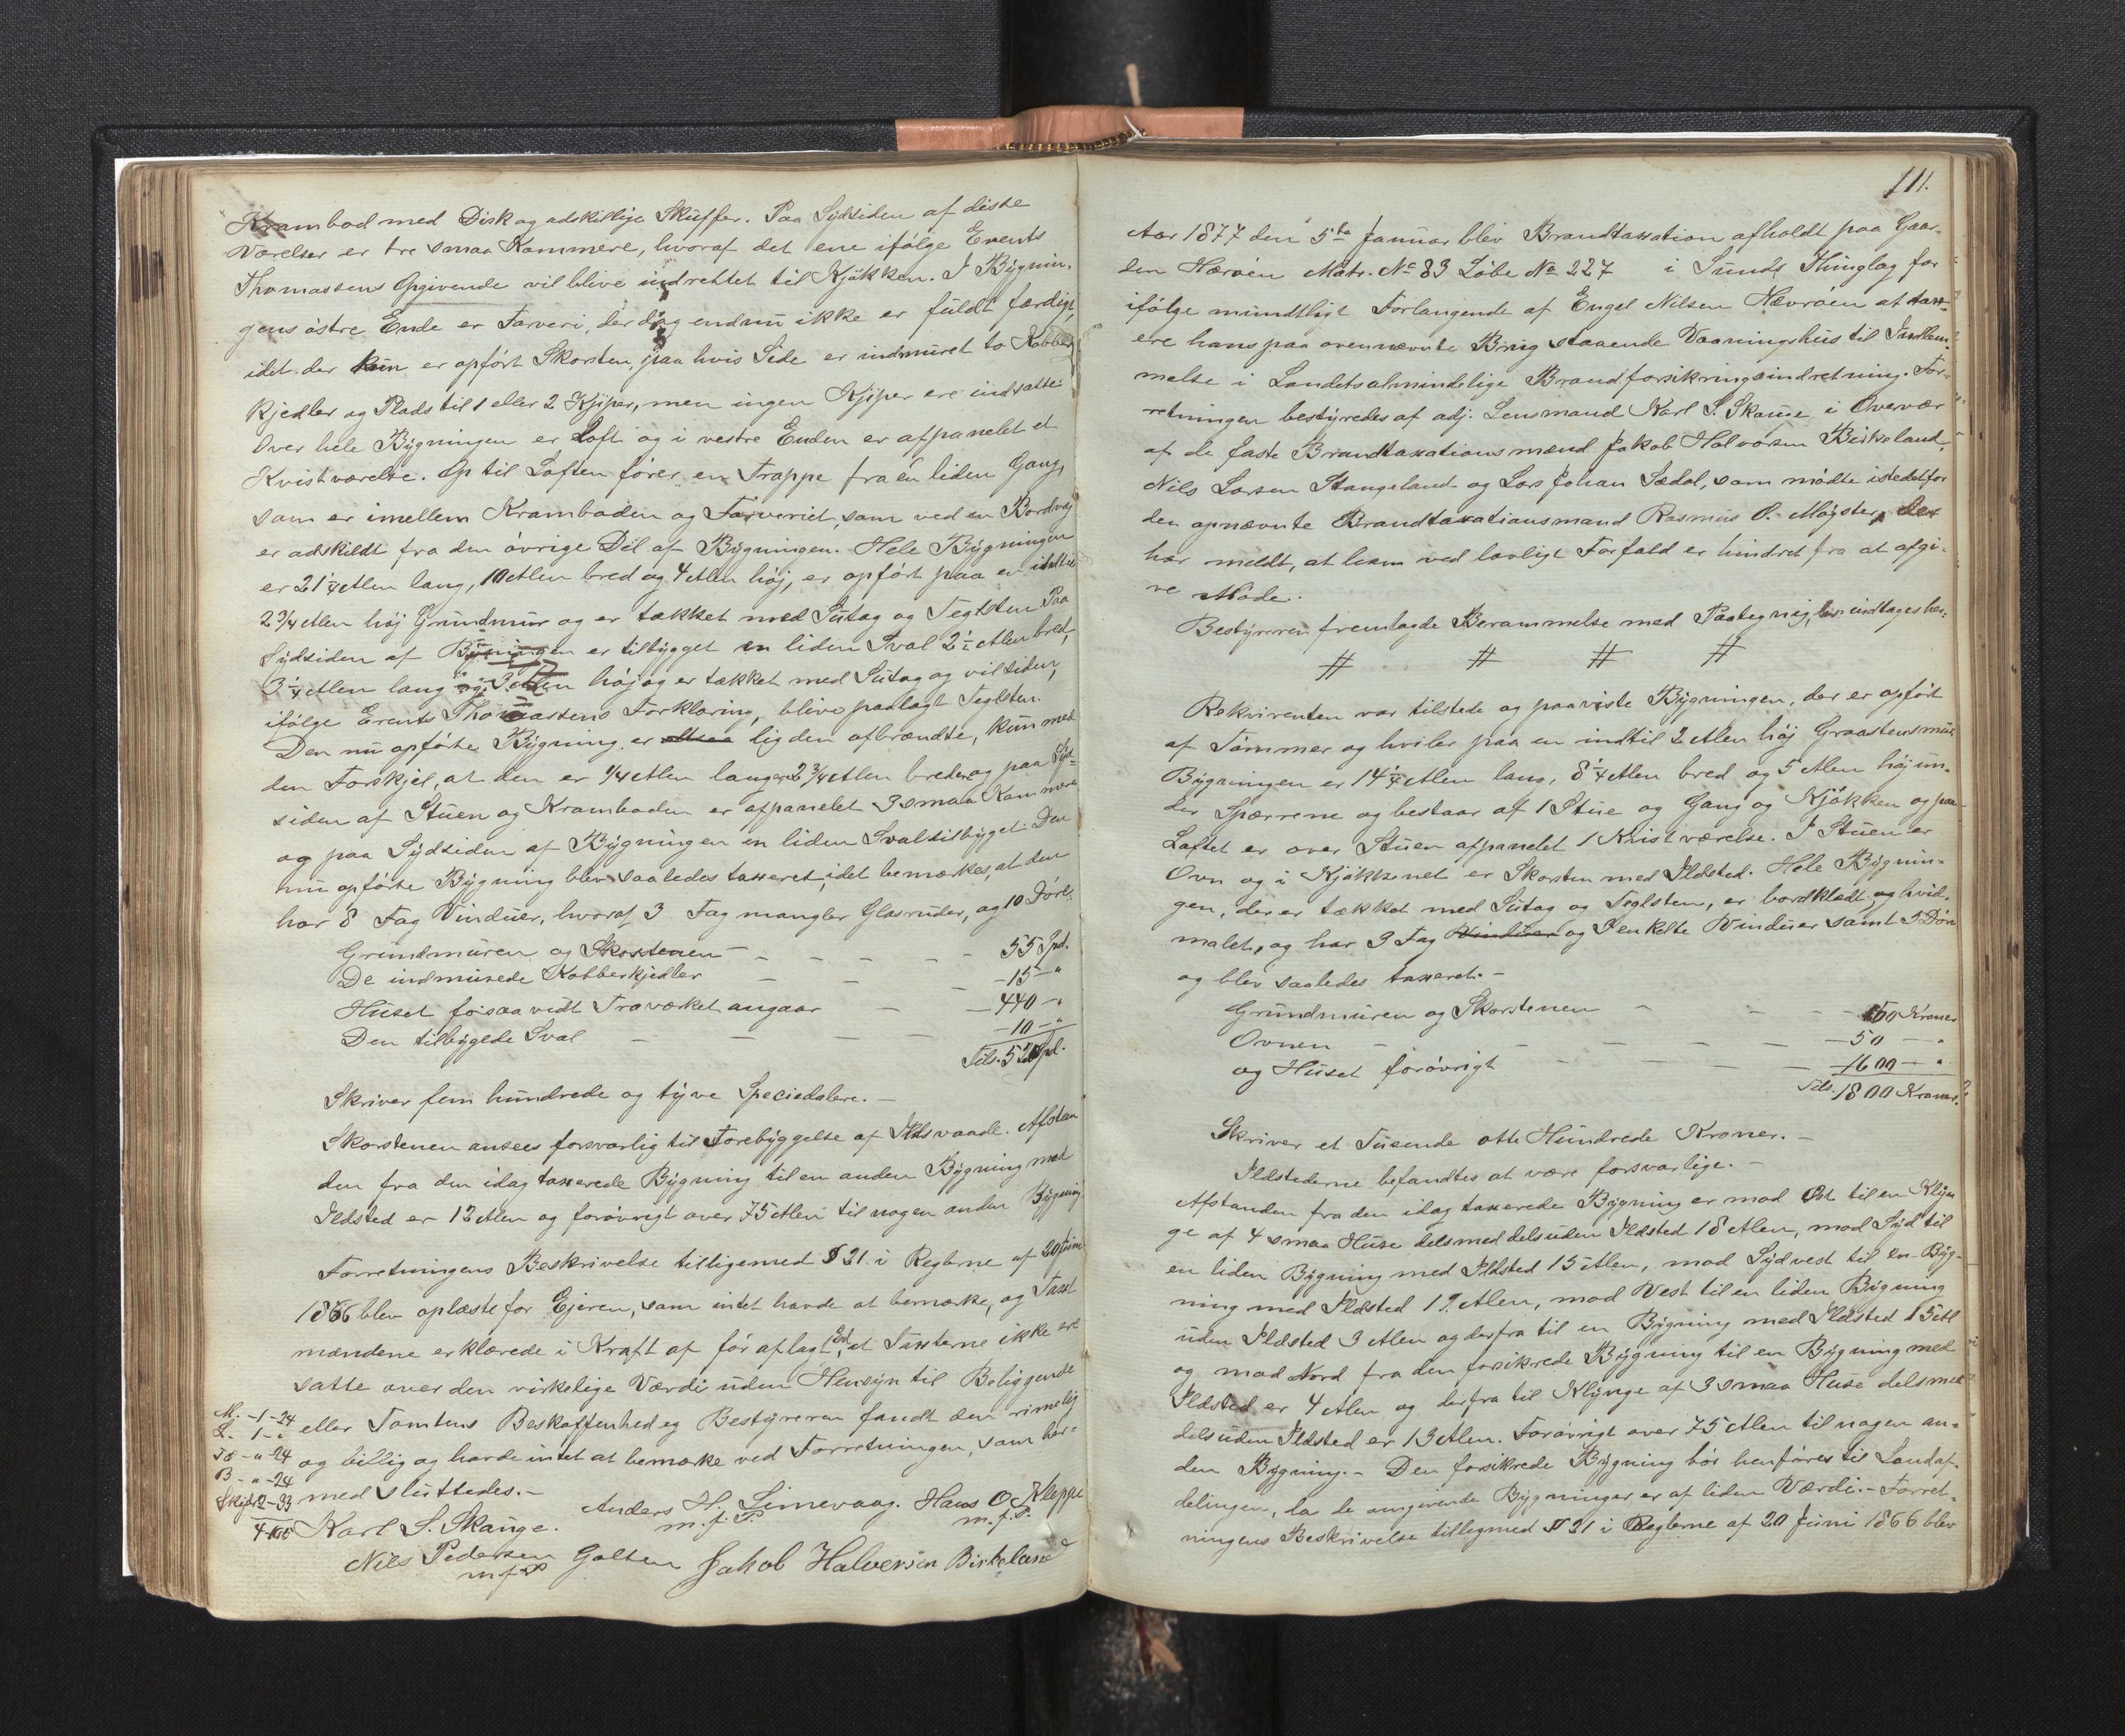 Krambod med Disk og adskillige Skuffer. Paa Sydsiden af disse
Værelser er tre smaa Kammere, hvoraf det ene ifølge Erents
Thomassens Opgivende vil blive indrettet til Kjøkken. I Bygnin-
gens østre Ende er Farveri, der dog endnu ikke er fuldt færdigt,
idet der kun er opført Skorsten, paa hvis Side er indmuret to Kobber
kjedler og Plads til 1 eller 2 Kyper, men ingen Kyper ere indsatte.
Over hele Bygningen er Loft og i vestre Enden er afpanelet et
Kvistværelse. Op til Loften fører en Trappe fra en liden Gang,
som er imellem Kramboden og Farveriet, som ved en Bordvæg
er adskildt fra den øvrige Del af Bygningen. Hele Bygningen
er 21 1/4 Alen lang, 10 Alen bred og 4 Alen høj, er opført paa en indtil
2 3/4 Alen høj Grundmur og er tækket med Sutag og Teglsten. Paa
Sydsiden af Bygningen er tilbygget en liden Sval 2 1/2 Alen bred,
3 1/4 Alen lang og 3 Alen høj og er tækket med Sutag og vil siden,
ifølge Erents Thomassens Forklaring, blive paalagt Teglsten.
Den nu opførte Bygning er altsaa lig den afbrændte, kun med
den Forskjel, at den er 1/4 Alen længere 2 3/4 Alen bredere og paa Syd-
siden af Stuen og Kramboden er afpanelet 3 smaa Kammere
og paa Sydsiden af Bygningen en liden Sval tilbygget. Den
nu opførte Bygning blev saaledes taxeret, idet bemærkes, at den
har 8 Fag Vinduer, hvoraf 3 Fag mangler Glasruder, og 10 Døre.
Grundmuren og Skorstenen - - - - - 55 Spd.
De indmurede Kobberkjedler - - - 15 - "
Huset forsaavidt Træværket angaar - - 440 - "
Den tilbyggede Sval - - - - 10 - "
Tils. 520 Spd.
Skriver fem hundrede og tyve Speciedalere. -
Skorstenen ansees forsvarlig til Forebyggelse af Ildsvaade. Afstan
den fra den idag taxerede Bygning til en anden Bygning med
Ildsted er 12 Alen og forøvrigt over 75 Alen til nogen anden Bygning
Forretningens Beskrivelse tilligemed § 21 i Reglerne af 20 Juni
1866 blev oplæste for Ejeren, som intet havde at bemærke, og Taxt
mændene erklærede i Kraft af før aflagt Ed, at Taxterne ikke ere
satte over den virkelige Værdi uden Hensyn til Beliggende
eller Tomtens Beskaffenhed og Bestyreren fandt den rimelig
og billig og havde intet at bemærke ved Forretningen, som her-
med sluttedes. -
M. - 1 - 24
L. 1 - "
Tæ - " - 24
B - " - 24
Skyds 2 - 33
Karl S. Skauge. Anders H. Limevaag. Hans O. Kleppe
m. f. P. m. f. P.
Nils Pedersen Golten Jakob Halversen Birkeland
m f P
111.
Aar 1877 den 5te Januar blev Brandtaxation afholdt paa Gaar-
den Hærøen Matr. No 83 Løbe No 227 i Sunds Thinglag for
ifølge mundtligt Forlangende af Engel Nilsen Nævrøen at tax-
ere hans paa ovennævnte Brug staaende Vaaningshus til Indlem-
melse i Landets almindelige Brandforsikringsindretning. For-
retningen bestyredes af adj. Lensmand Karl S. Skauge i Overvær
af de faste Brandtaxationsmænd Jakob Halvorsen Birkeland,
Nils Larsen Stangeland og Lars Johan Sædal, som mødte istedetfor
den opnævnte Brandtaxationsmand Rasmus O. Møgster, der
har meldt, at han ved lovligt Forfald er hindret fra at afgi-
ve Møde.
Bestyreren fremlagde Berammelse med Paategning, der indtages her:
# # # #
Rekvirenten var tilstede og paaviste Bygningen, der er opført
af Tømmer og hviler paa en indtil 2 Alen høj Graastensmur.
Bygningen er 14 1/4 Alen lang, 8 1/4 Alen bred og 5 Alen høj un-
der Spærrene og bestaar af 1 Stue og Gang og Kjøkken og paa
Loftet er over Stuen afpanelet 1 Kvistværelse. I Stuen er
Ovn og i Kjøkkenet er Skorsten med Ildsted. Hele Bygnin-
gen, der er tækket med Sutag og Teglsten, er bordklædt og hvid-
malet, og har 3 Fag Vinduer og 5 enkelte Vinduer samt 5 Døre
og blev saaledes taxeret. -
Grundmuren og Skorstenen - - - - 150 Kroner
Ovnen - - - - - - 50 - "
og Huset forøvrigt - - - - 1600 - "
Tils. 1800 Kroner.
Skriver et Tusende otte Hundrede Kroner. -
Ildstederne befandtes at være forsvarlige. -
Afstanden fra den idag taxerede Bygning er mod Øst til en Klyn
ge af 4 smaa Huse dels med dels uden Ildsted 18 Alen, mod Syd til
en liden Bygning med Ildsted 15 Alen, mod Sydvest til en Byg-
ning med Ildsted 19 Alen, mod Vest til en liden Bygning
uden Ildsted 3 Alen og derfra til en Bygning med Ildsted 15 Al
og mod Nord fra den forsikrede Bygning til en Bygning med
Ildsted er 4 Alen og derfra til Klynge af 3 smaa Huse dels med
dels uden Ildsted er 13 Alen. Forøvrigt over 75 Alen til nogen an-
den Bygning. - Den forsikrede Bygning bør henføres til Landaf-
delingen, da de omgivende Bygninger er af liden Værdi. - Forret-
ningens Beskrivelse tilligemed § 21 i Reglerne af 20 Juni 1866 blev